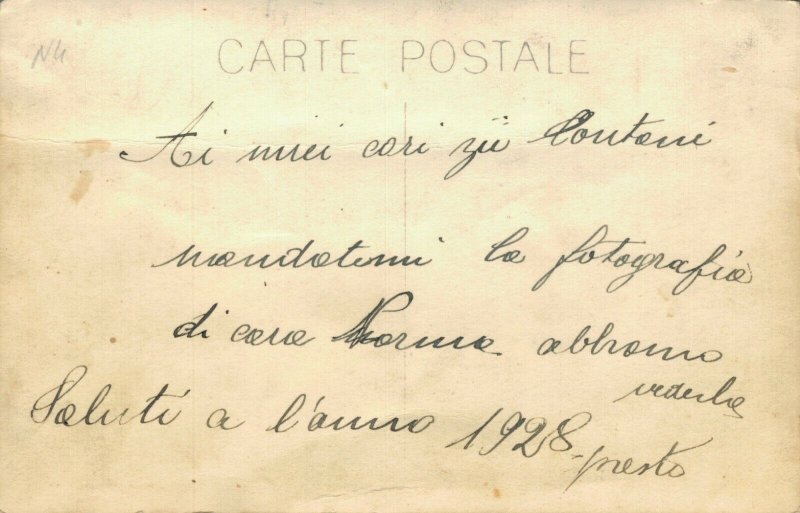 N4
CARTE POSTALE
Ai miei cari zii Lontani
mandatemi la fotografia
di cara Norma abbiamo
vederla
Saluti a l'anno 1928 - presto